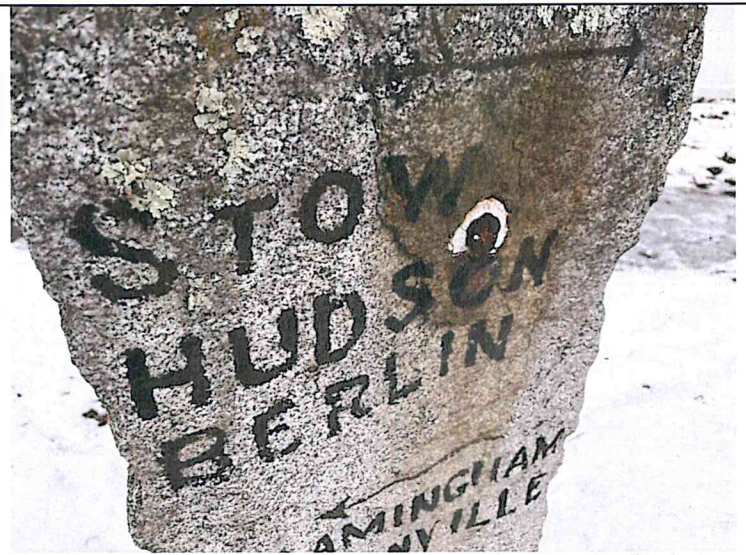 STOW
HUDSON
BERLIN
AMINGHAM
NVILLE